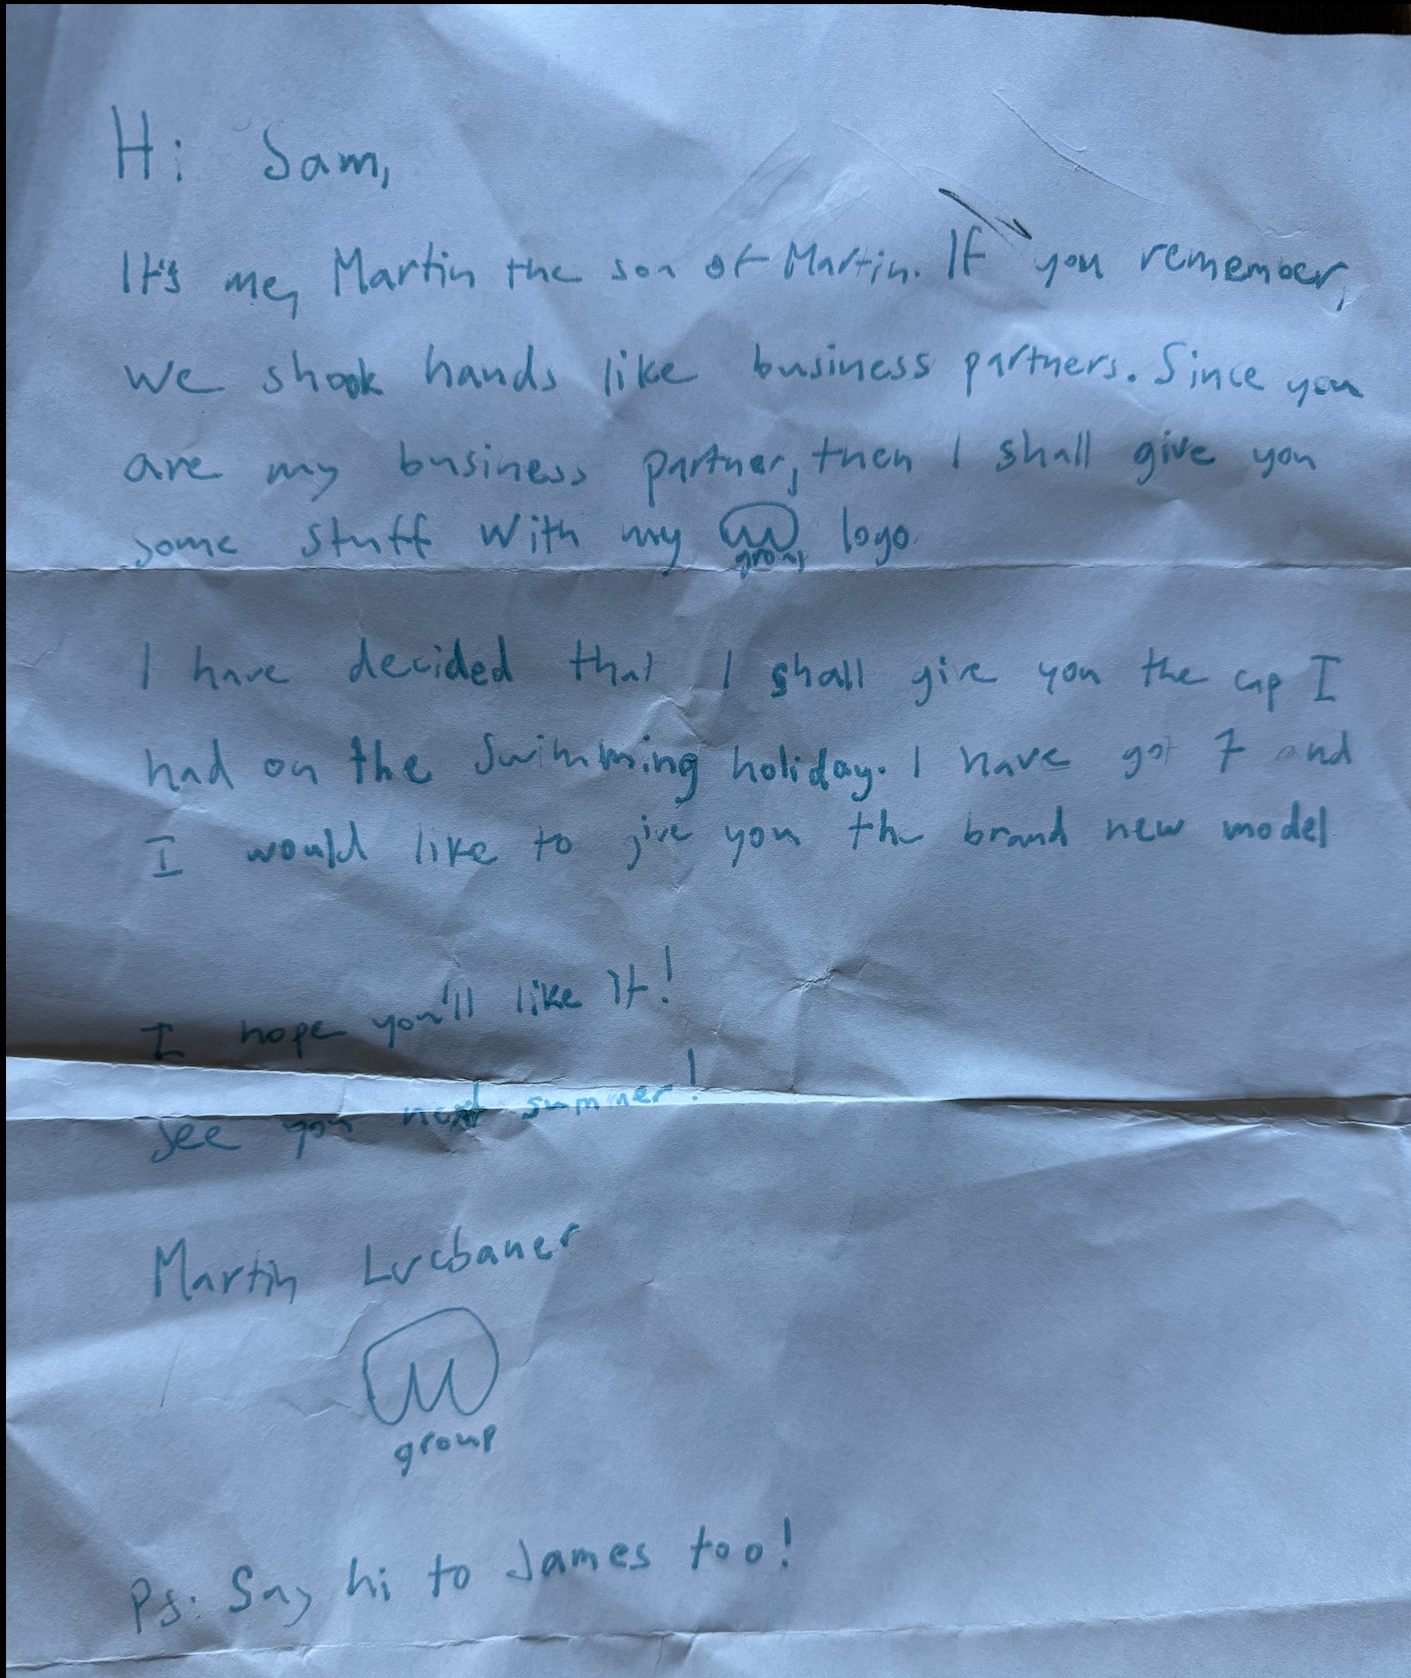 Hi Sam,
It's me, Martin the son of Martin. If you remember,
we shook hands like business partners. Since you
are my business partner, then I shall give you
some stuff with my M group logo
I have decided that I shall give you the cap I
had on the swimming holiday. I have got 7 and
I would like to give you the brand new model
I hope you'll like it!
See you next summer!
Martin
M
group
Ps: Say hi to James too!